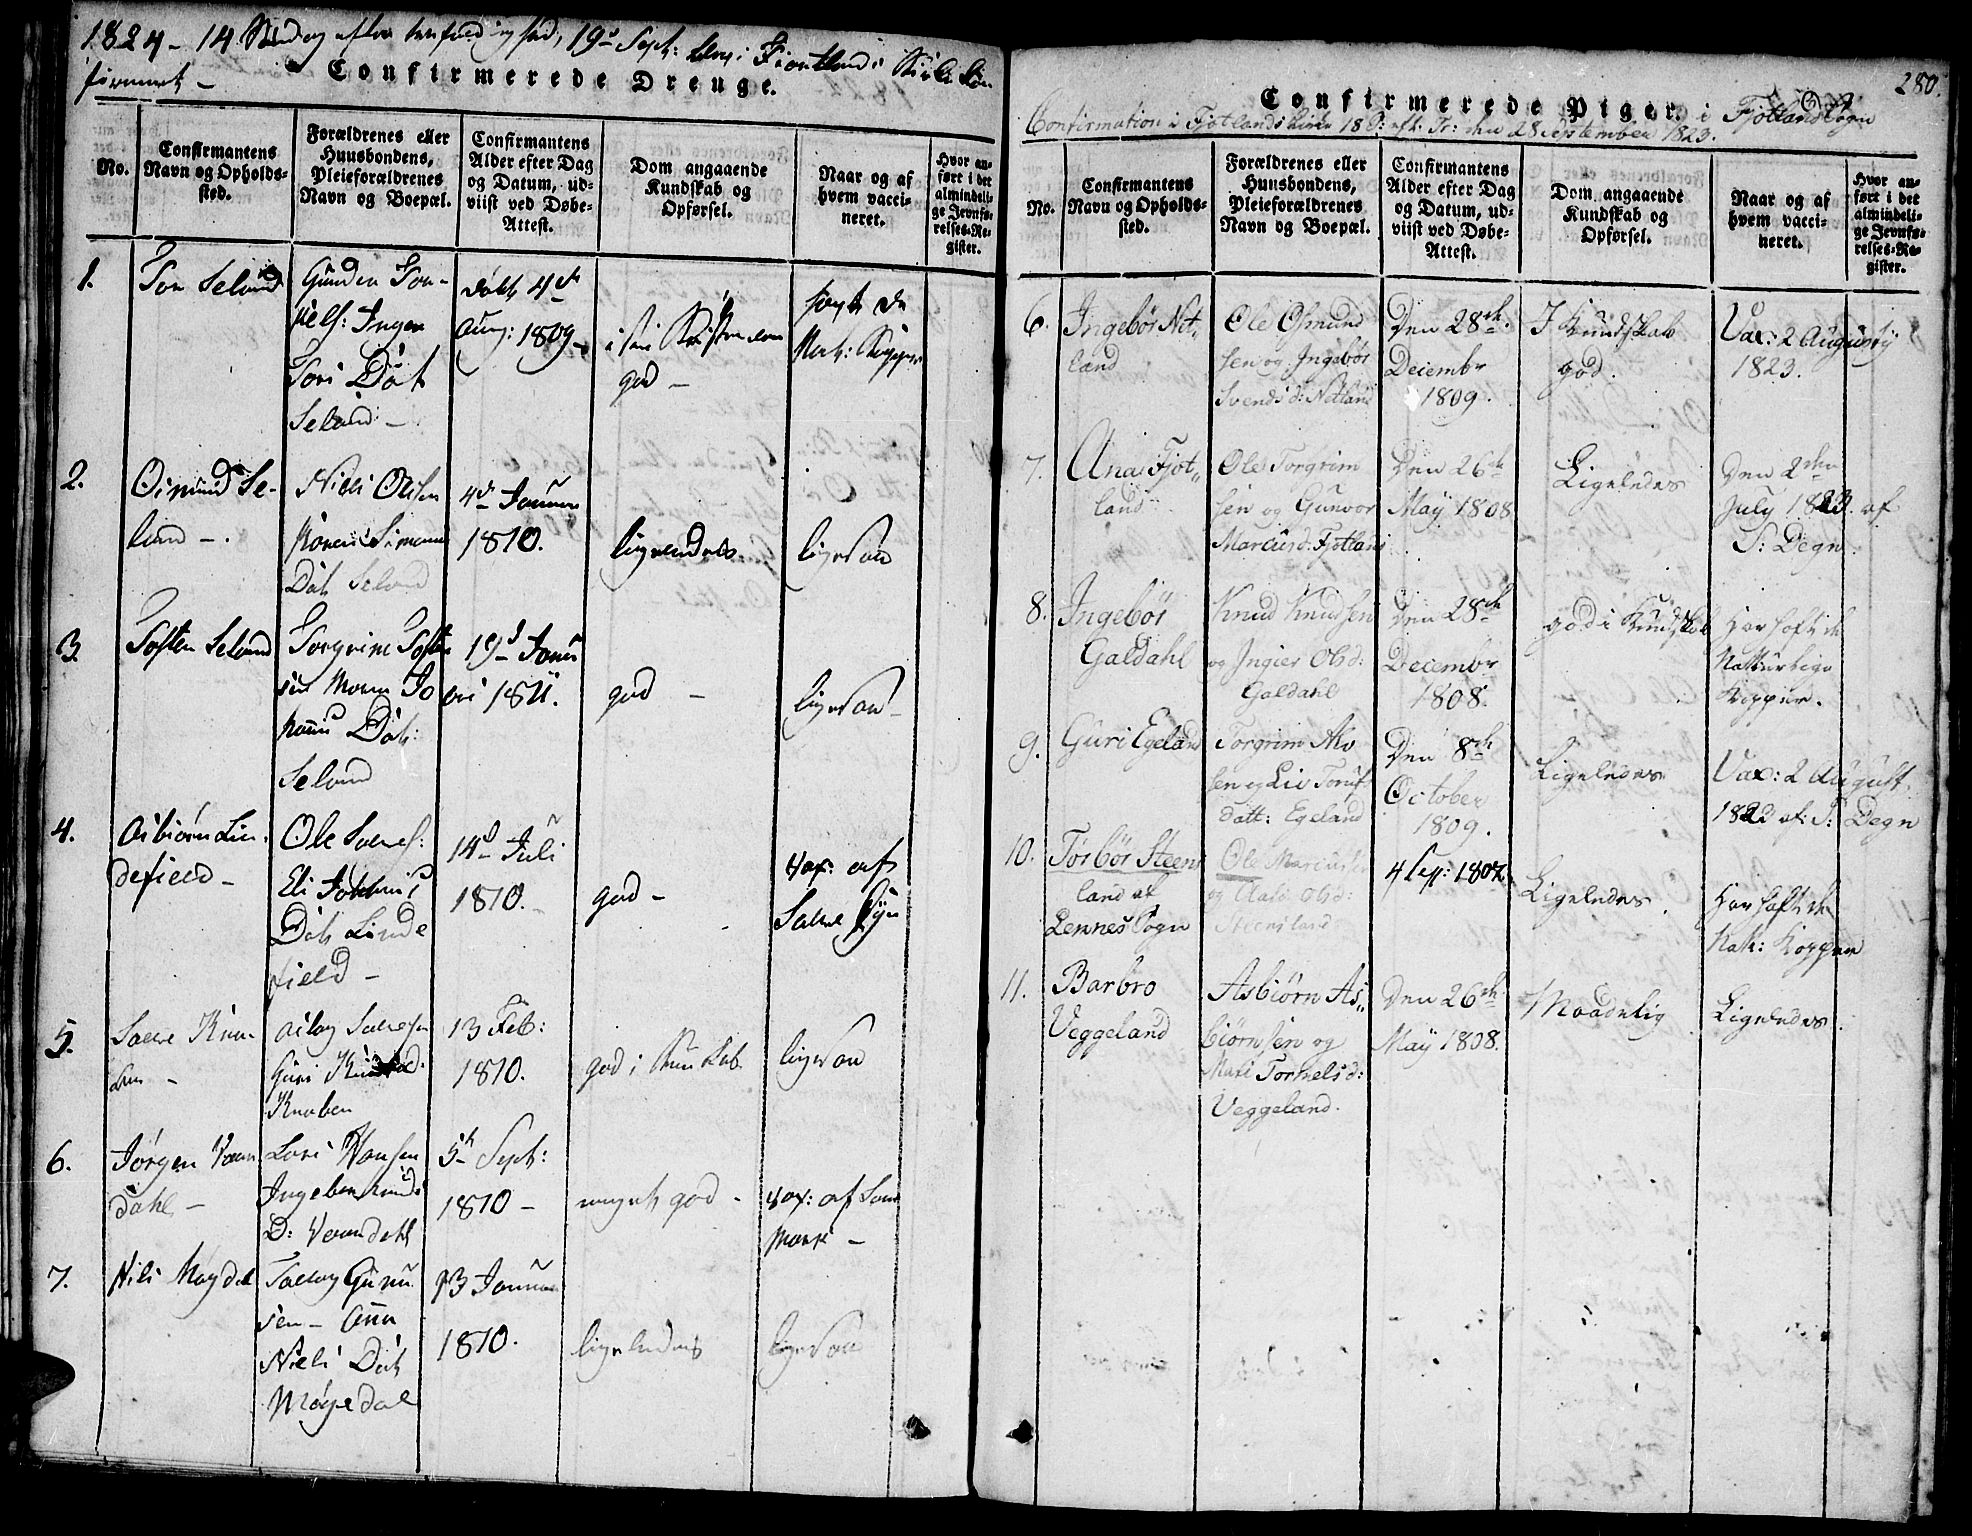 1824 - 14 Søndag efter trefoldighed, 19d Sept: blev i Fiotland Kirke Con
firmeret -
Confirmerede Drenge.
No.
Confirmantens
Navn og Opholds-
sted.
Forældrenes eller
Huusbondens,
Pleieforældrenes
Navn og Boepæl.
Confirmantens
Alder efter Dag
og Datum, ud-
viist ved Døbe-
Attest.
Dom angaaende
Kundskab og
Opførsel.
Naar og af
hvem vacci-
neret.
Hvor an-
ført i det
almindeli-
ge Jevnfø-
relses-Re-
gister.
1.
Tore Seland
Gunder Tor-
Inger
Tori Dat
Seland -
døbt 4d
Aug: 1809 -
i sin Christendom
god -
havt de
Nat: Kopper
2.
Osmund Se-
land -
Niels Olsen
Karen Simons
Dat Seland
4d Januar
1810.
ligeledes
ligesaa
3.
Tosten Seland
Torgrim Toste
sen Maren Jo
hannis Dat:
Seland
19d Janu
ari 1811.
god -
ligesaa -
4.
Asbiørn Lin-
defield -
Ole Salves:
Eli
Dat Linde
field -
14d Juli
1810. -
god -
vax: af
Salve
5.
Salve Kna-
ben -
Aslag Salvesen
Guri
Knaben
13 Feb:
1810.
god i Kundskab
ligesaa
6.
Jørgen Vaan
dahl -
Lars Hansen
D: Vaandahl
5t Sept:
1810 -
meget god -
vax: af
7.
Nils Møgdal
Tallag Gunu
sen - Anna
Niels Dat
Møgedal
13 Januar
1810.
ligeledes
ligesaa
280.
Confirmerede Piger. i Fjotland Sogn
Confirmation i Fjotlands Kirke 18 S: eft: Tr: den 28 September 1823.
No.
Confirmantens
Navn og Opholds-
sted.
Forældrenes eller
Huusbondens,
Pleieforældrenes
Navn og Boepæl.
Confirmantens
Alder efter Dag
og Datum, ud-
viist ved Døbe-
Attest.
Dom angaaende
Kundskab og
Opførsel.
Naar og af
hvem vacci-
neret.
Hvor an-
ført i det
almindeli-
ge Jevnfø-
relses-Re-
gister.
6.
Ingebør Net„
land
Ole Osmund
sen og Ingebør
Svends d: Netland
Den 28de
Decembr
1809.
I Kundskab
god.
Vax: 2 Augusty
1823.
7.
Ana Fjot„
land
Ole Torgrim
sen og Gunvor
Marcus d: Fjotland
Den 26de
May 1808
Ligeledes
Den 2den
July 1823. af
S: Degn.
8.
Ingebør
Galdahl
Knud Knudsen
og Ingier Ols d:
Galdahl
Den 28de
Decembr
1808.
god i Kundskab
Har haft de
Naturlige
Kopper.
9.
Guri Egeland
Torgrim
sen og Liv
datt: Egeland
Den 8de
October
1809.
Ligeledes
Vax: 2 August.
1822 af: S: Degn
10.
Tørbør Steens
land af
Lennes Sogn
Ole Marcussen
og Aase Ols d:
Steensland
4 Sept: 1807.
Ligeledes.
Har haft de
Nat: Kopper
11.
Barbro
Veggeland
Asbiørn As„
biørnsen og
Mari Tormels d:
Veggeland.
Den 26de
May 1808.
Maadelig
Ligeledes.